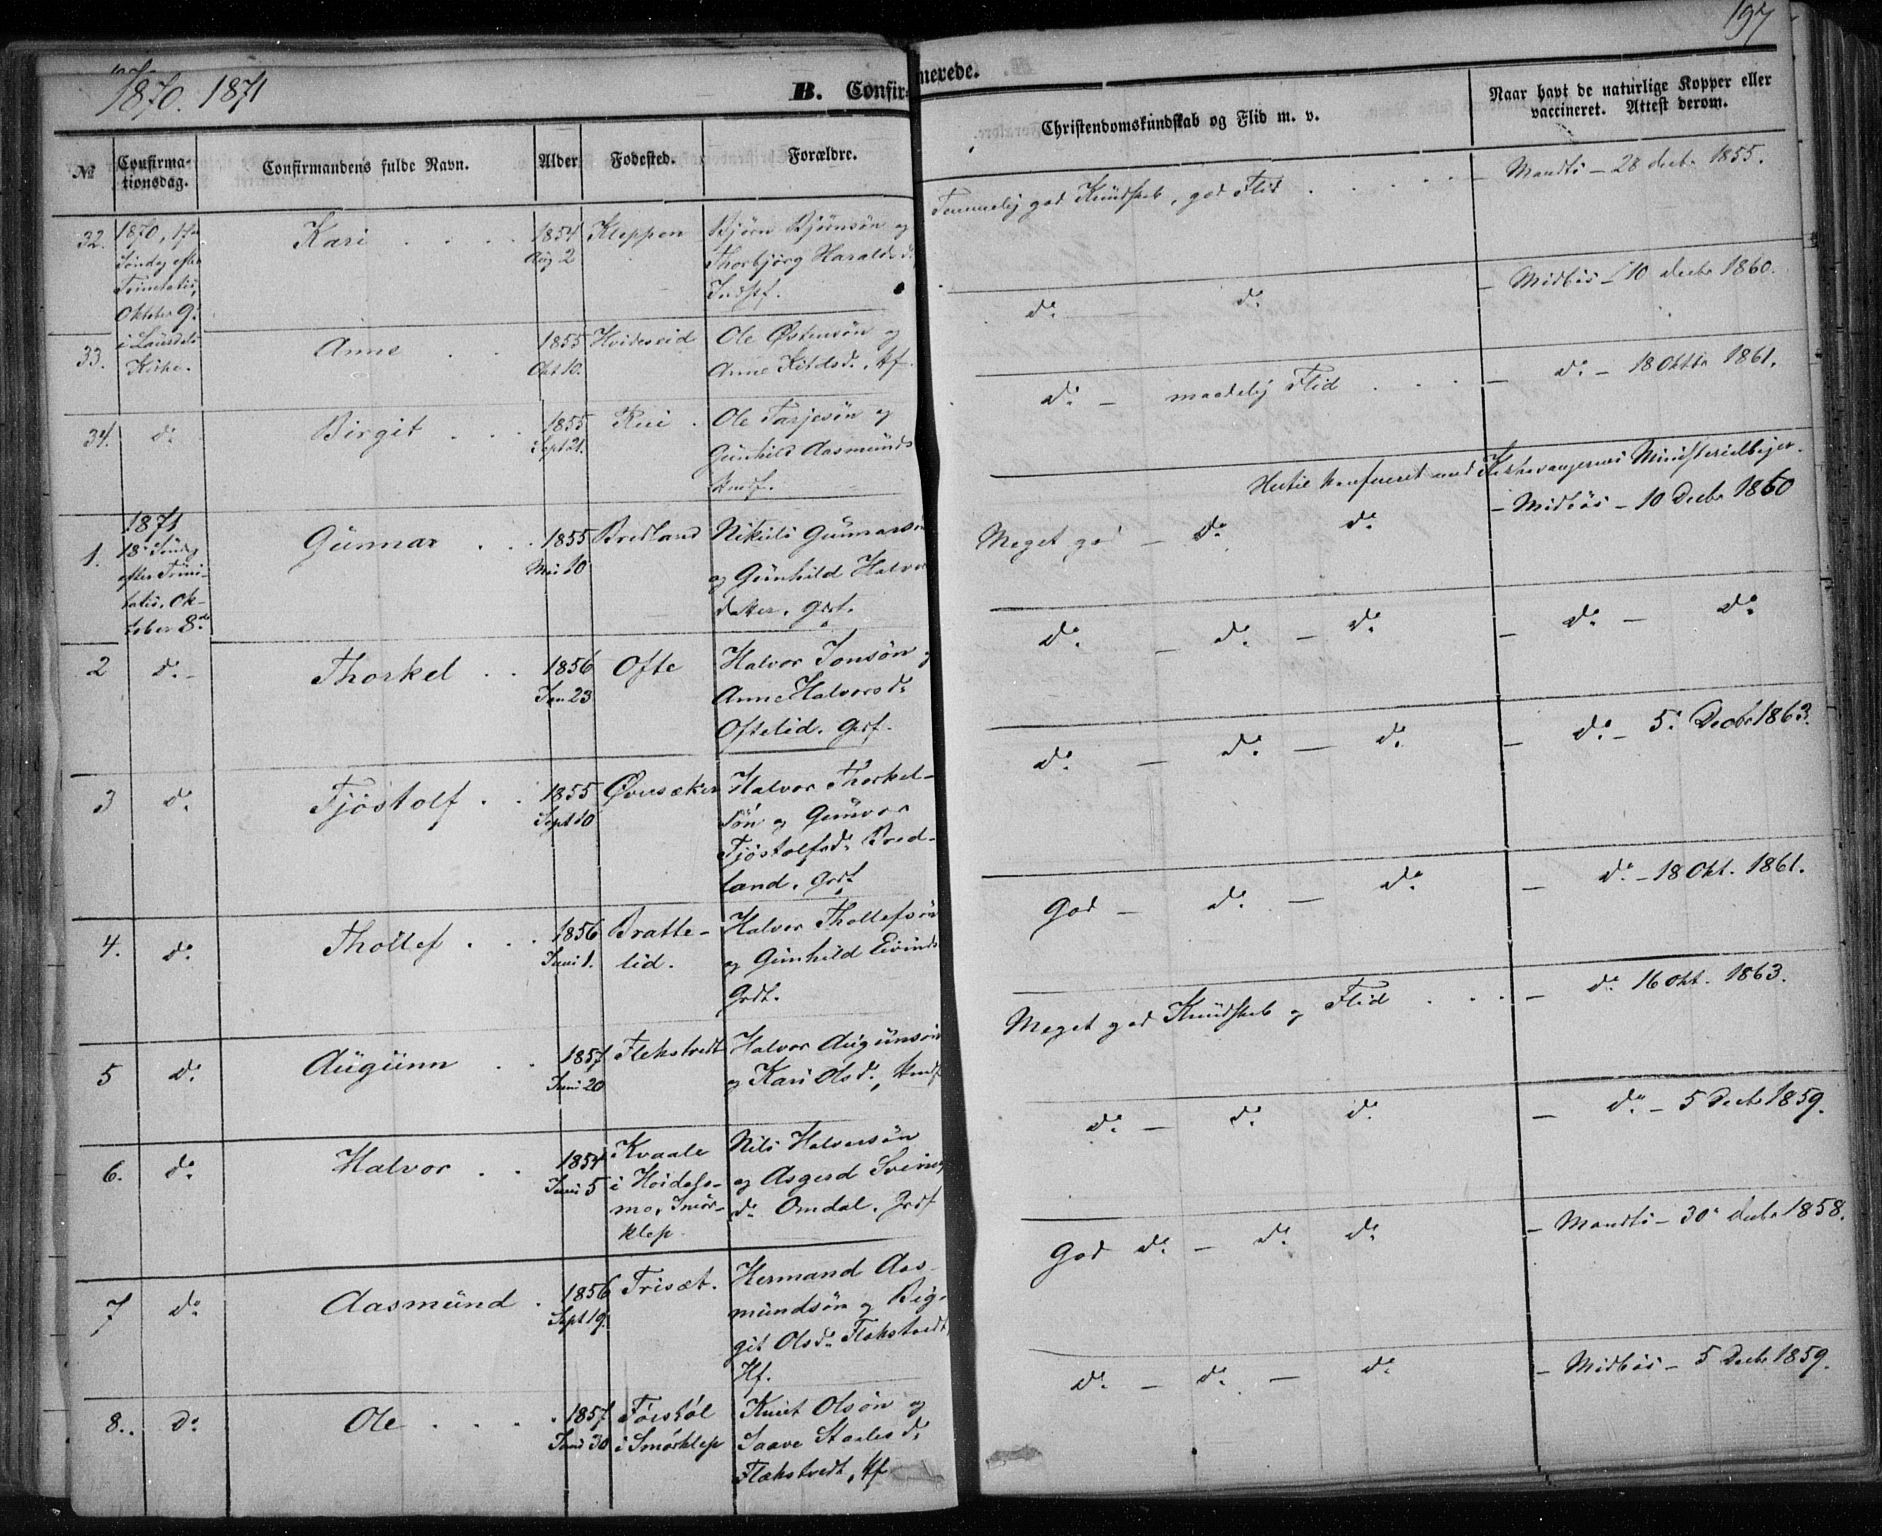 1870. 1871
197
B. Confirmerede.
No
Confirmationsdag.
Confirmandens fulde Navn.
Alder
Fødested.
Forældre.
Christendomskundskab og Flid m. v.
Naar havt de naturlige Kopper eller
vaccineret. Attest derom.
32.
1870, 17de
Søndag efter
Trinitatis,
Oktober 9.
i Laurdals
Kirke.
Kari
1854
Aug 2
Kleppen
Bjørn Bjørnsøn og
Thorbjørg Haralds d.
Indst.
Temmelig god Kundskab, god Flid
Mandts - 28 decbr 1855.
33.
Anne
1855
Okt 10.
Hvideseid
Ole Østensøn og
Anne Kitilsd., Hf.
d. d.
Midbøs - 10 decbr 1860.
34.
d.
Birgit
1855
Sept 21.
Rui
Ole Tarjesøn og
Gunhild Aasmunds
Hmdf.
d. - maadelig Flid
d. - 18 Oktbr 1861.
Hertil konfereret med Kirkesangernes Ministerialbøger.
1.
1871
18de Søndag
efter Trini-
tatis, Ok-
tober 8de
Gunnar
1855
Mai 10
Bredland
Nikuls Gunnarsøn
og Gunhild Halvors
datter. Grdf.
Meget god - d. d.
Midbøs - 10 Decbr 1860
2
d. -
Thorkel
1856
Jan 23
Ofte
Halvor Jonsøn og
Anne Halvors d.
Oftelid. Grdf.
d. - d. - d.
d. - d.
3
d.
Tjøstolf
1855
Sept 10
Øversæker
Halvor Thorkel-
søn og Gunvor
Tjøstolfsd. Bred-
land. Grdf
d. - d. - d.
d. - 5. Decbr 1863.
4.
d.
Thollef
1856
Juni 1.
Bratte-
lid.
Halvor Thollefsøn
og Gunhild Eivinds
Grdf.
God - d. - d.
d. - 18 Okt. 1861.
5
d.
Augunn
1857
Juni 20
Flekstvedt
Halvor Augunsøn
og Kari Olsd., Hmdf
Meget god Kundskab og Flid
d. 16 Okt. 1863.
6.
d.
Halvor
1854
Juni 5
Kvaale
i Høidals-
mo, Smør-
klep
Nils Halvorsøn
og Asgerd Sveins
d. Omdal. Grdf
d. - d. d.
d. - 5 Decbr 1859.
7
d.
Aasmund
1856
Sept 19.
Trisæt.
Hermand Aas-
mundsøn og Bir-
git Olsd. Flekstvedt,
Hf.
God d. - d. d.
Mandts - 30. decbr 1858.
8.
d.
Ole
1857
Juni 30
Førstøl
i Smørklep
Knut Olsøn og
Saave Staales d.
Flekstvedt, Hf
d. - d. - d.
Midbøs - 5 Decbr 1859.